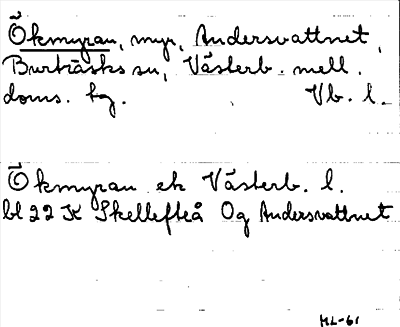 Ökmyran, myr, Andersvattnet,
Burträsks sn, Västerb. mell.
doms. hg. Vb. l.
Ökmyran ek Västerb. l.
bl 22 K Skellefteå Og Andersvattnet
ML-61